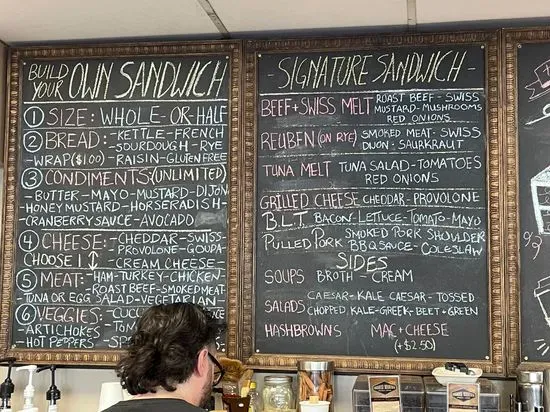 BUILD YOUR OWN SANDWICH
① SIZE: WHOLE-OR-HALF
② BREAD: -KETTLE-FRENCH
-SOURDOUGH-RYE
-WRAP($1.00)-RAISIN-GLUTEN FREE
③ CONDIMENTS: (UNLIMITED)
-BUTTER-MAYO-MUSTARD-DIJON
HONEY MUSTARD-HORSERADISH
-CRANBERRY SAUCE-AVOCADO
④ CHEESE: -CHEDDAR-SWISS-
CHOOSE 1 -PROVOLONE-GOUDA
-CREAM CHEESE-
⑤ MEAT: -HAM-TURKEY-CHICKEN-
-ROAST BEEF-SMOKED MEAT-
TUNA OR EGG SALAD-VEGETARIAN-
⑥ VEGGIES:
ARTICHOKES
-HOT PEPPERS-
-SIGNATURE SANDWICH-
BEEF+SWISS MELT ROAST BEEF-SWISS
MUSTARD-MUSHROOMS
RED ONIONS
REUBEN (ON RYE) SMOKED MEAT-SWISS
DIJON-SAURKRAUT
TUNA MELT TUNA SALAD-TOMATOES
RED ONIONS
GRILLED CHEESE CHEDDAR-PROVOLONE
B.L.T. BACON-LETTUCE-TOMATO-MAYO
PULLED PORK SMOKED PORK SHOULDER
BBQ SAUCE-COLESLAW
SIDES
SOUPS BROTH-CREAM
SALADS CAESAR-KALE CAESAR-TOSSED
CHOPPED, KALE-GREEK-BEET+GREEN
HASHBROWNS MAC+CHEESE
(+$2.50)